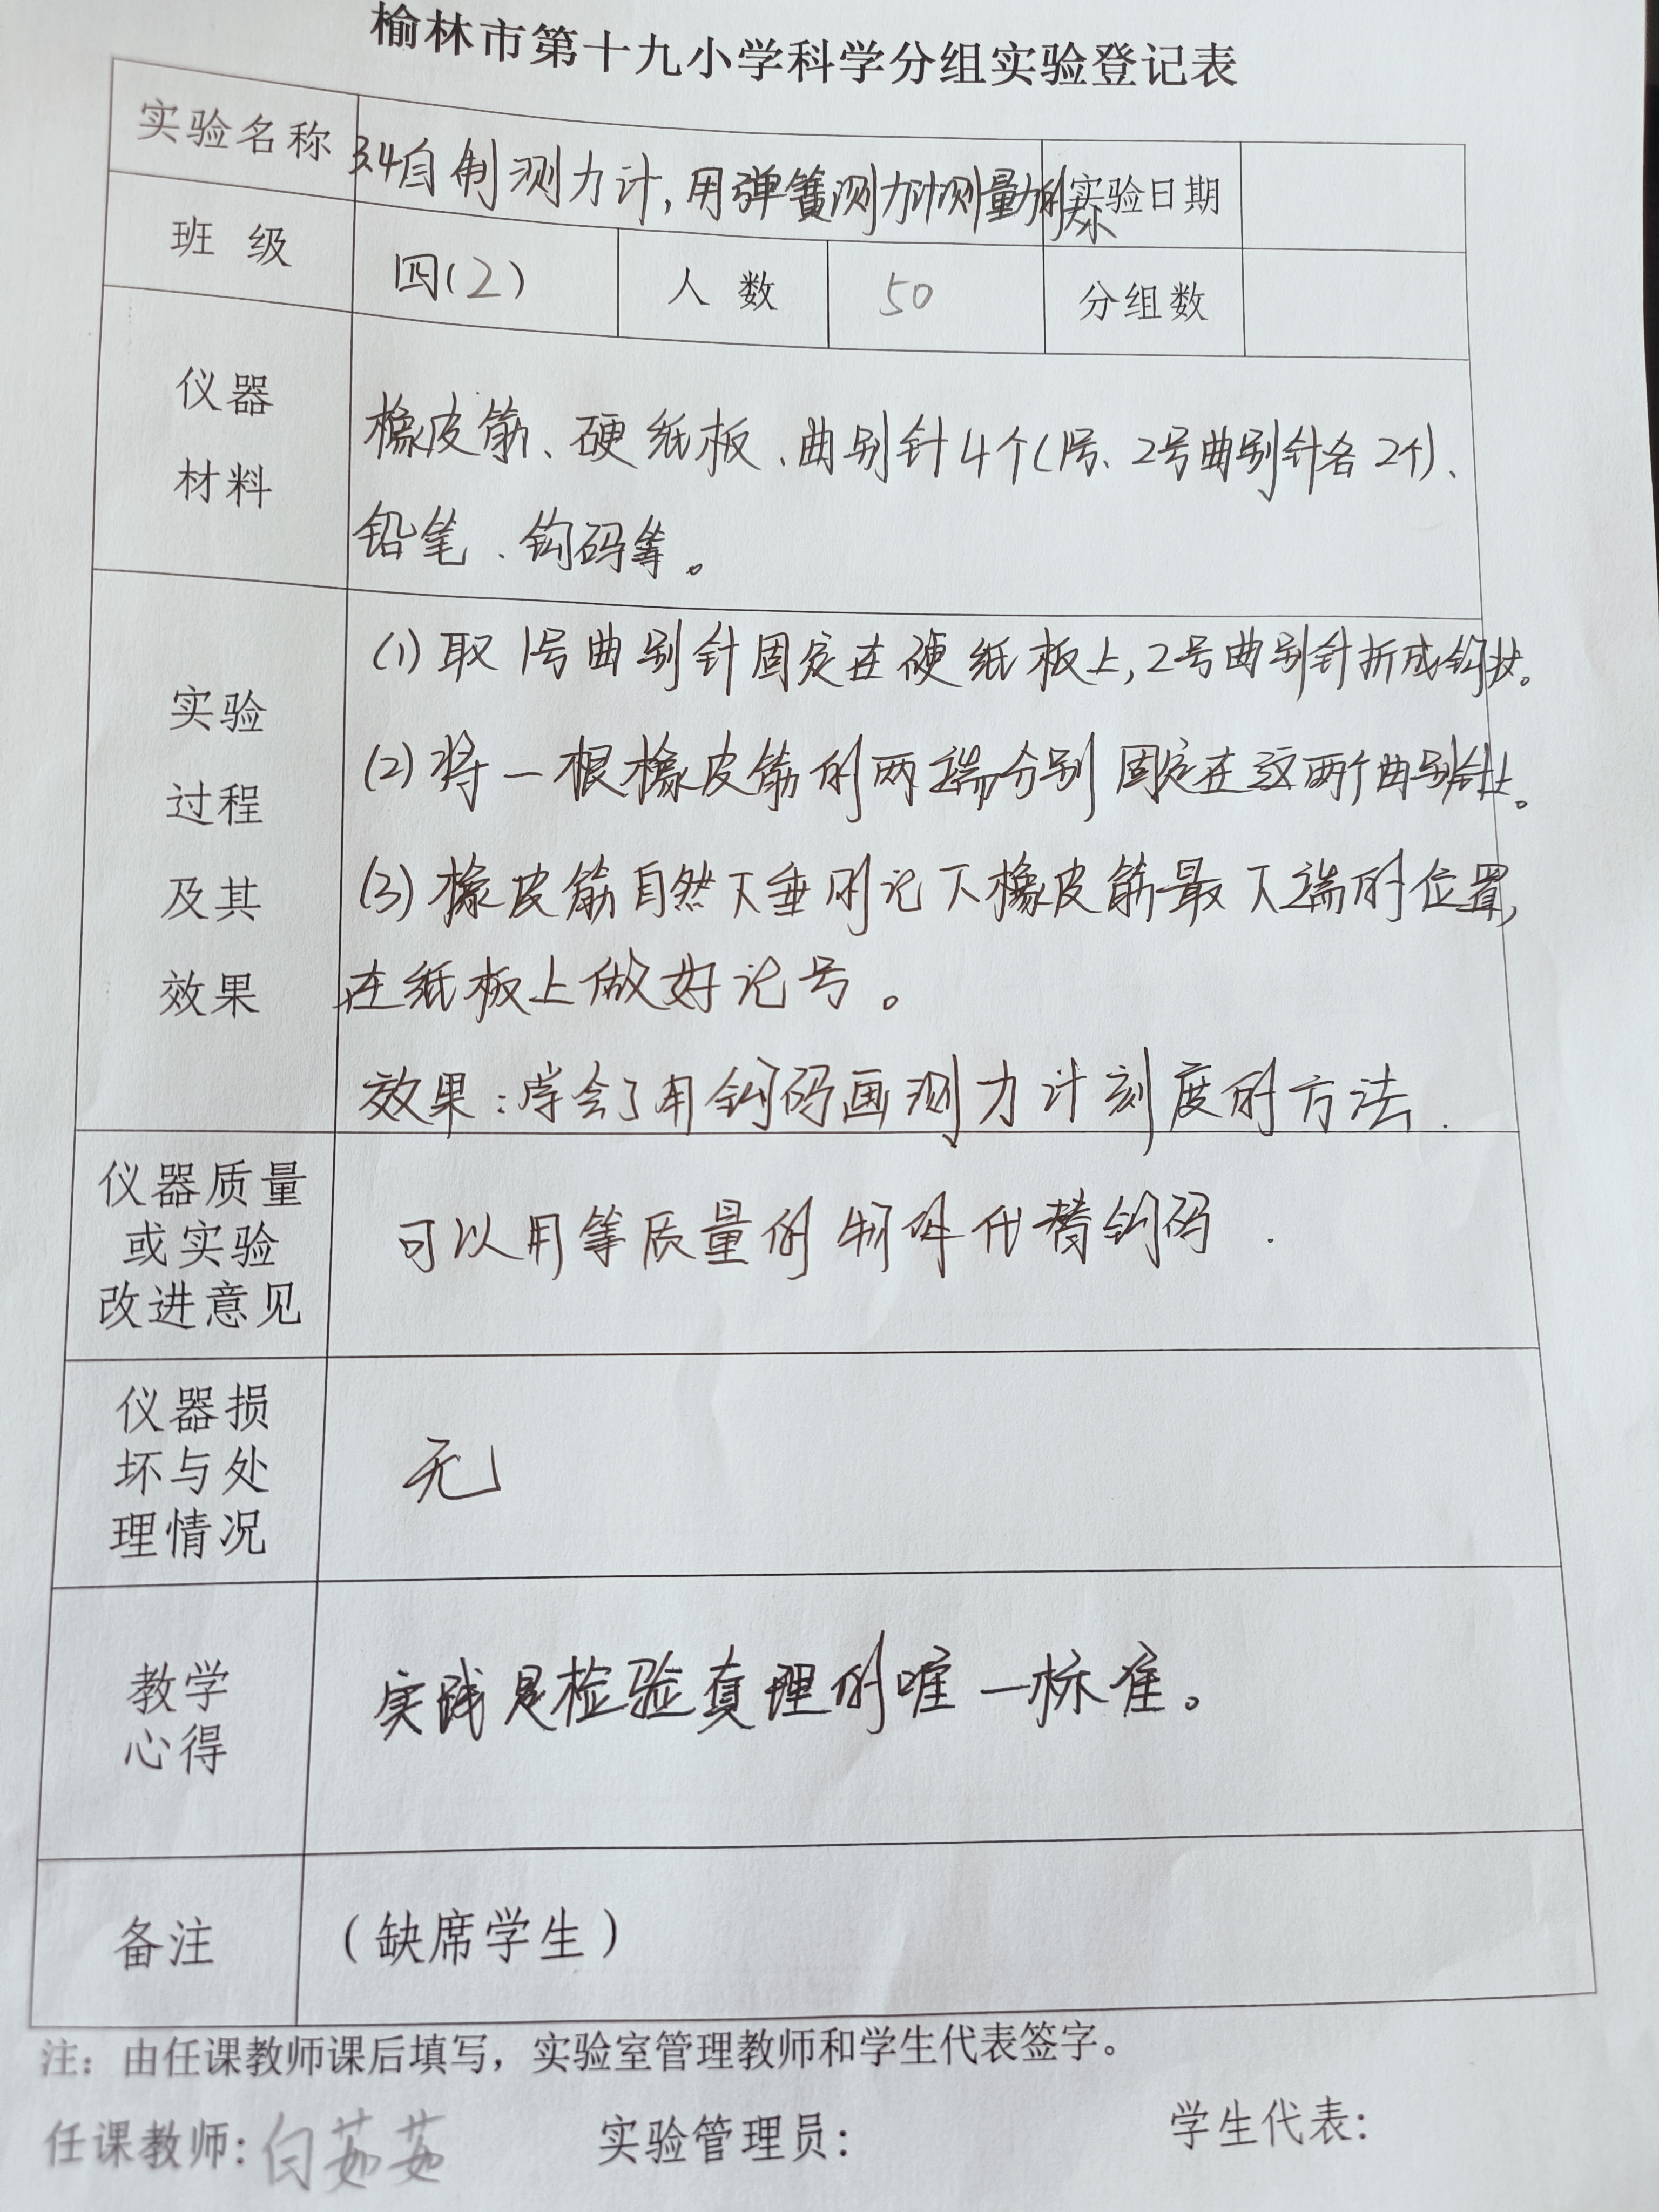 榆林市第十九小学科学分组实验登记表
实验名称 3.4自制测力计,用弹簧测力计测量力的大小 实验日期
班 级 四(2) 人 数 50 分组数
仪器
材料
橡皮筋、硬纸板、曲别针4个(1号、2号曲别针各2个)、
铅笔、钩码等。
实验
过程
及其
效果
(1)取1号曲别针固定在硬纸板上,2号曲别针折成钩状。
(2)将一根橡皮筋的两端分别固定在这两个曲别针上。
(3)橡皮筋自然下垂时记下橡皮筋最下端的位置,
在纸板上做好记号。
效果:学会了用钩码画测力计刻度的方法.
仪器质量
或实验
改进意见
可以用等质量的物件代替钩码.
仪器损
坏与处
理情况
无
教学
心得
实践是检验真理的唯一标准。
备注 (缺席学生)
注:由任课教师课后填写,实验室管理教师和学生代表签字。
任课教师:白茹茹 实验管理员: 学生代表: